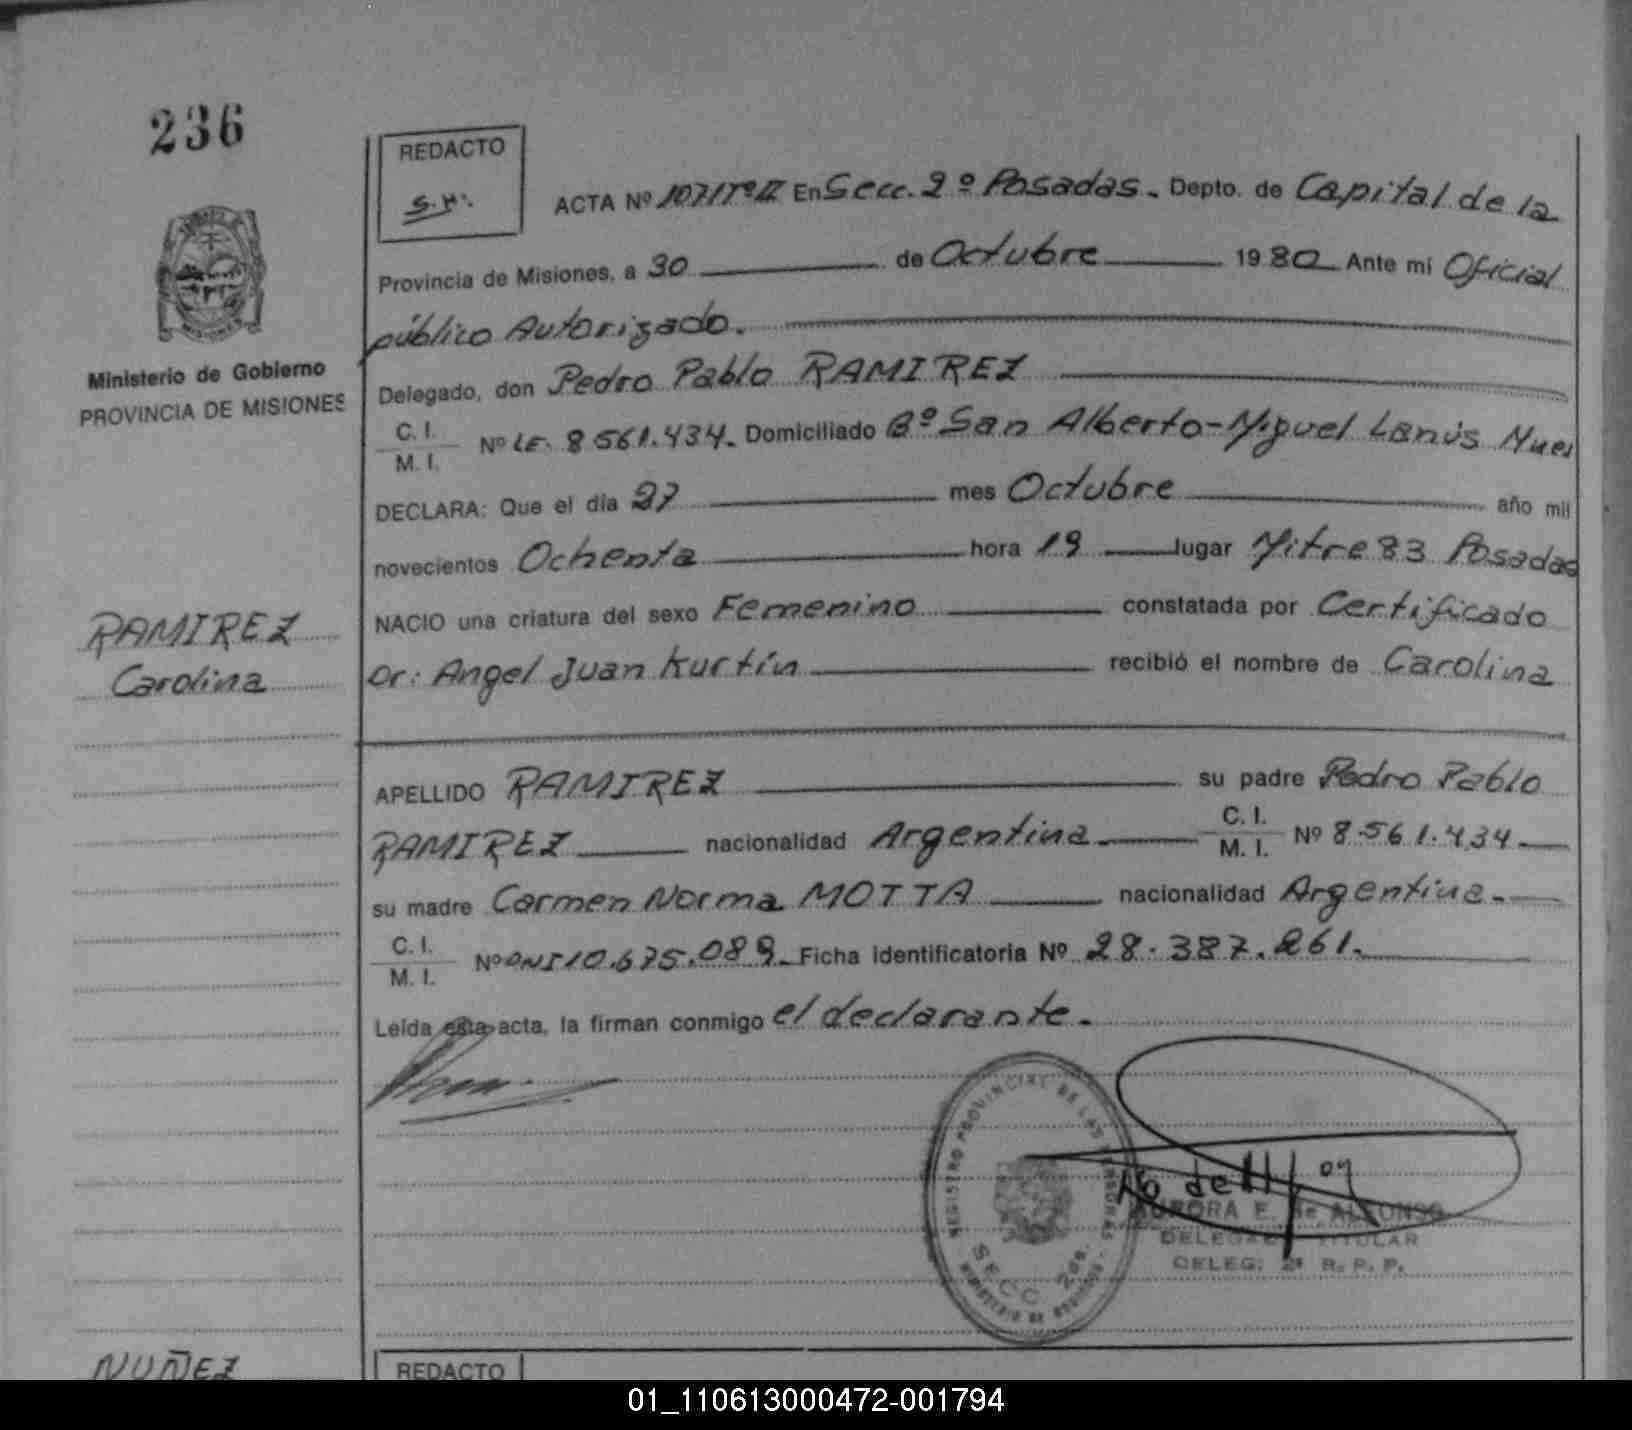 236
REDACTO
S.H.
ACTA Nº 1071Tº II En Secc. 2º Posadas. Depto. de Capital de la
Provincia de Misiones, a 30 de Octubre 1980 Ante mi Oficial
público Autorizado.
Ministerio de Gobierno
PROVINCIA DE MISIONES
Delegado, don Pedro Pablo RAMIREZ
C. I.
M. I.
Nº LE. 8561.434. Domiciliado Bº San Alberto-Miguel Lanús Mues
DECLARA: Que el día 27 mes Octubre año mil
novecientos Ochenta hora 19 lugar Mitre 83 Posadas
NACIO una criatura del sexo Femenino constatada por Certificado
RAMIREZ
Carolina
Dr: Angel Juan Kurtín recibió el nombre de Carolina
APELLIDO RAMIREZ su padre Pedro Pablo
RAMIREZ nacionalidad Argentina. C. I.
M. I.
Nº 8.561.434.
su madre Carmen Norma MOTTA nacionalidad Argentina.
C. I.
M. I.
Nº DNI 10.675.089. Ficha identificatoria Nº 28.387.261.
Leída esta acta, la firman conmigo el declarante.
REGISTRO PROVINCIAL DE LAS PERSONAS
SECC. 2da.
MINISTERIO DE GOBIERNO
16 de 11/09
AURORA E. de ALFONSO
DELEGADA TITULAR
DELEG: 2ª R. P. P.
NUÑEZ
REDACTO
01_110613000472-001794